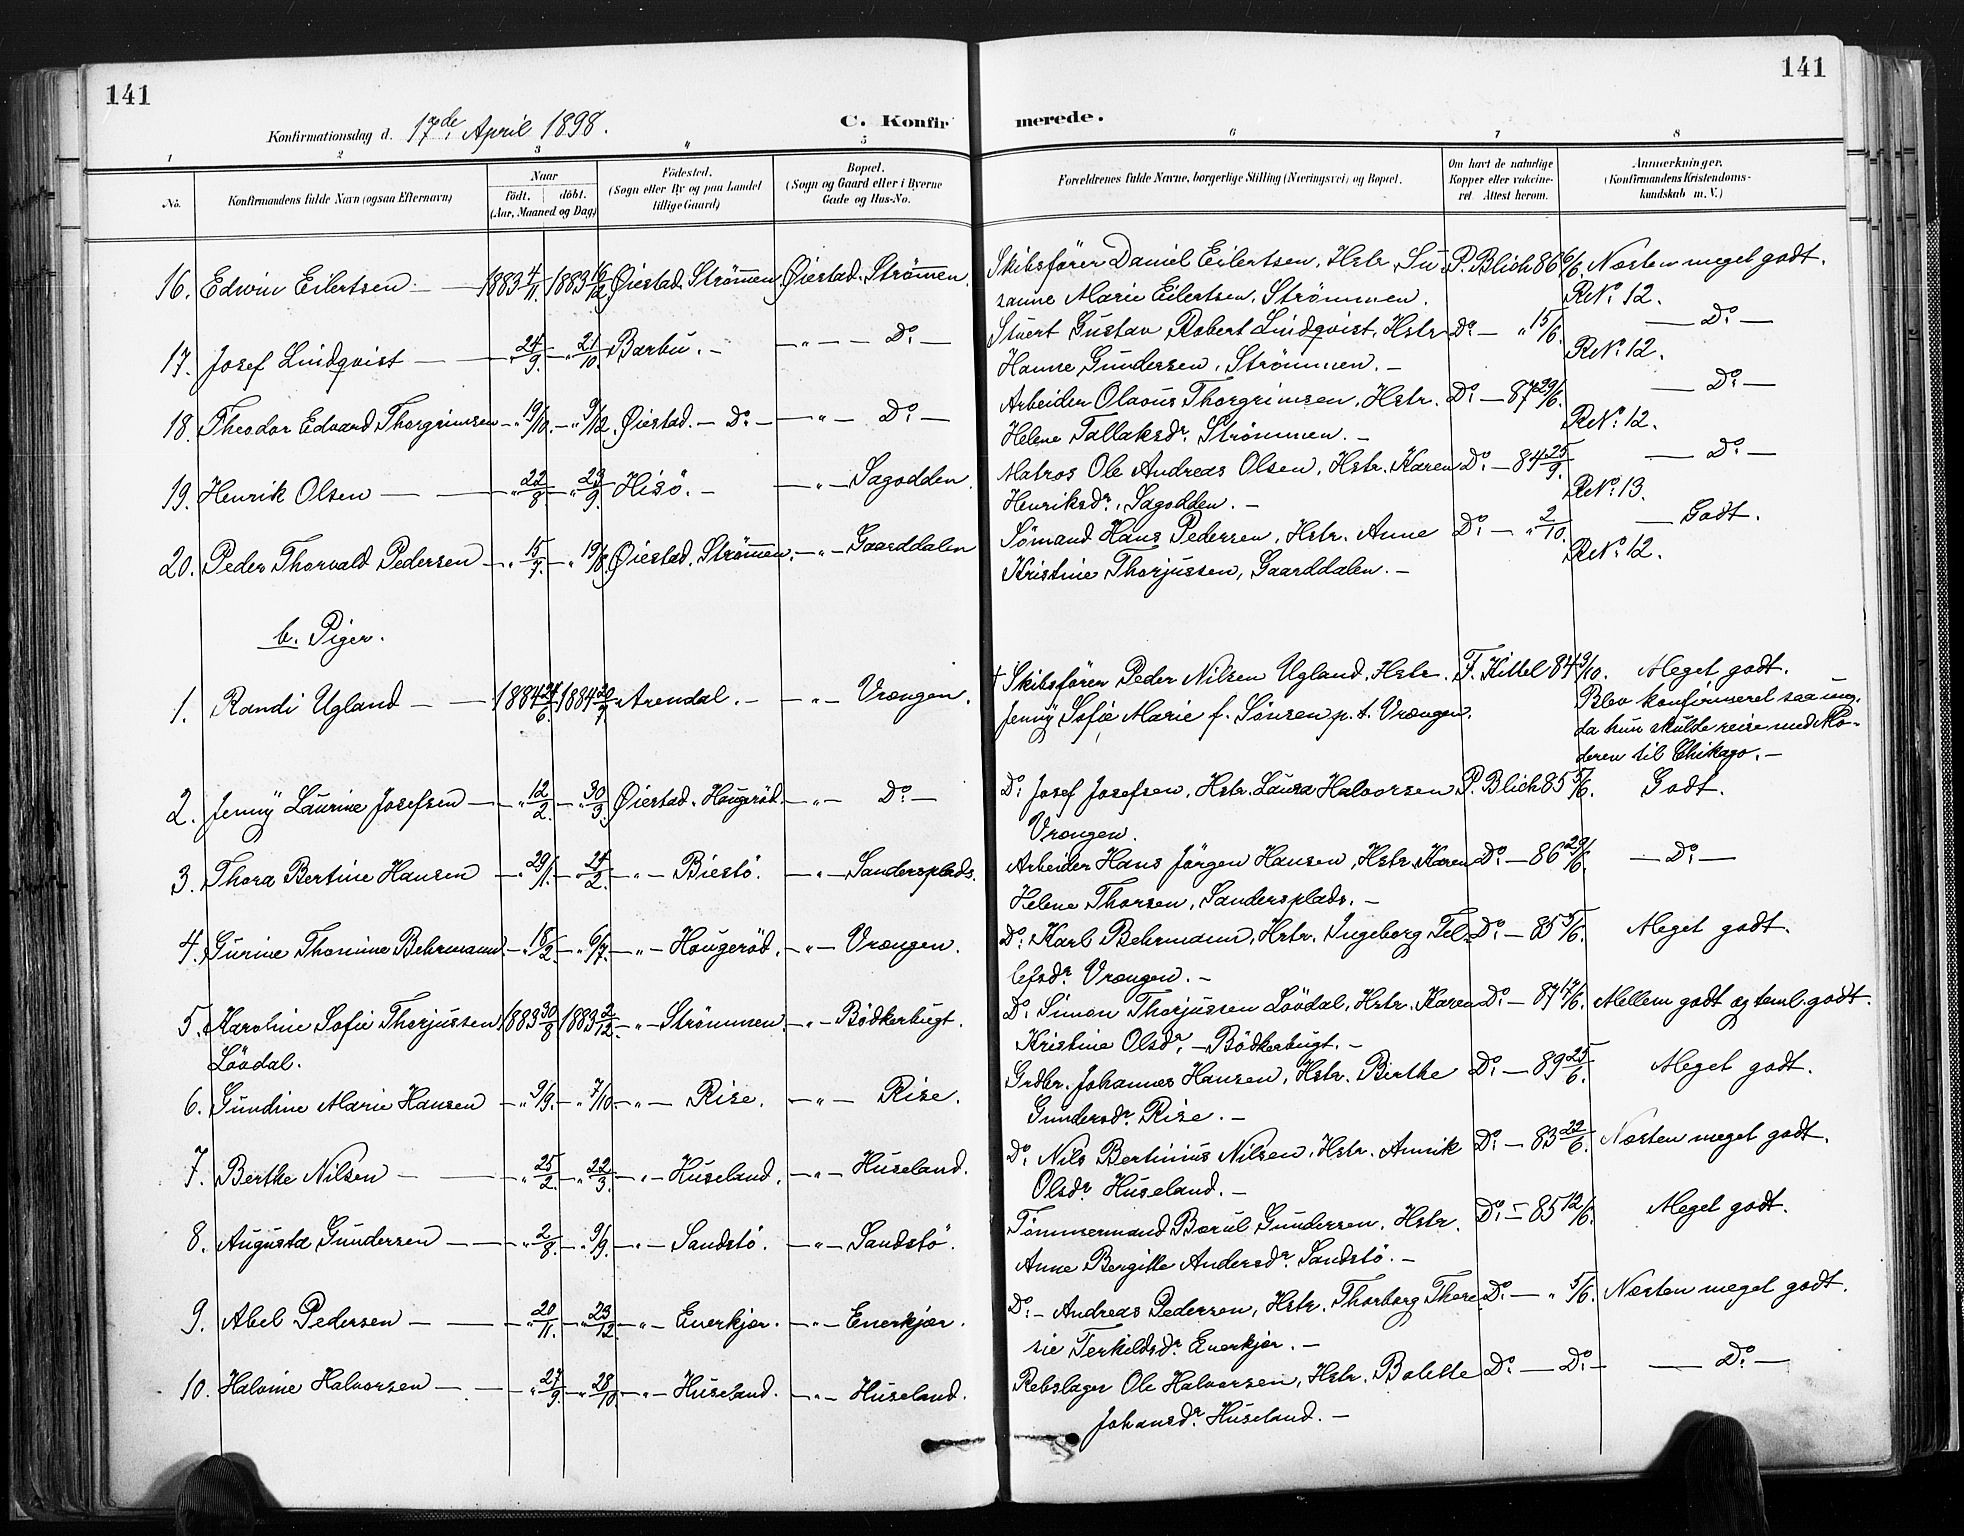 141
141
Konfirmationsdag d. 17de April 1898.
C. Konfirmerede.
1 2 3 4 5 6 7 8
No.
Konfirmandens fulde Navn (ogsaa Efternavn)
Naar
födt. döbt.
(Aar, Maaned og Dag)
Födested.
(Sogn eller By og paa Landet
tillige Gaard)
Bopæl.
(Sogn og Gaard eller i Byerne
Gade og Hus-No.
Forældrenes fulde Navne, borgerlige Stilling (Næringsvei) og Bopæl.
Om havt de naturlige
Kopper eller vaccine-
ret Attest herom.
Anmærkninger.
(Konfirmandens Kristendoms-
kundskab m. V.)
16. Edwin Eilertsen — 1883 4/11. 1883 16/12 Øiestad, Strömmen, Øiestad, Strømmen. Skibsfører Daniel Eilertsen, Hstr. Su- P. Blich 86 6/6. Næsten meget godt.
sanne Marie Eilertsen, Strömmen. R.No. 12.
17. Josef Lindqvist — — „ 24/9. — „ 21/10. Barbu. — — „ — Do. — Stuert Gustav Robert Lindqvist, Hstr. Do. — „ 15/6. — Do. —
Hanne Gundersen, Strømmen. — R.No. 12.
18. Theodor Edvard Thorgrimsen — „ 19/10. — „ 9/12. Øiestad. — Do. — — „ — Do. — Arbeider Olavus Thorgrimsen, Hstr. Do. — 87 29/6. — Do. —
Helene Tallaksdr. Strömmen. — R.No. 12.
19. Henrik Olsen — — „ 22/8. — „ 23/9. Hisö. — — „ — Sagodden. Matros Ole Andreas Olsen, Hstr. Karen Do. — 84 25/9. — Do. —
Henriksdr., Sagodden. — R.No. 13.
20. Peder Thorvald Pedersen — „ 15/7. — „ 19/8. Øiestad, Strömmen. — „ — Gaarddalen Sømand Hans Pedersen, Hstr. Anne Do. — „ 2/10. — Godt.
Kristine Thorjussen, Gaarddalen. — R.No. 12.
b. Piger.
1. Randi Ugland — — 1884 24/6. 1884 20/7 Arendal. — — „ — Vrængen. † Skibsfører Peder Nilsen Ugland, Hstr. F. Kittel 84 9/10. Meget godt.
Jenny Sofie Marie f. Sönsen p. t. Vrængen. Blev konfirmeret saa ung,
da hun skulde reise med Mo-
deren til Chikago. —
2. Jenny Laurine Josefsen — „ 12/2. — „ 30/3. Øiestad. Hougeröd — „ — Do. — Do. Josef Josefsen, Hstr. Laura Halvorsen P. Blich 85 5/6. Godt.
Vrængen.
3. Thora Bertine Hansen — „ 29/1. — „ 24/2. — „ — Biestö. — „ — Sandersplads. Arbeider Hans Jörgen Hansen, Hstr. Karen Do. — 86 29/6. — Do. —
Helene Thorsen, Sandersplads. —
4. Gurine Thomine Behrmann — „ 18/2. — „ 6/7. — „ — Hougeröd. — „ — Vrængen. Do. Karl Behrmann, Hstr. Ingeborg Tel- Do. — 85 5/6. Meget godt.
lefsdr. Vrængen. —
5. Karoline Sofie Thorjussen 1883 30/8 1883 2/12. — „ — Strömmen — „ — Bödkerbugt. Do. Simon Thorjussen Lövdal, Hstr. Karen Do. — 87 17/6. Mellem godt og teml. godt.
Lövdal. Kristine Olsdr. — Bödkerbugt. —
6. Gundine Marie Hansen — „ 9/9. — „ 7/10. — „ — Rise. — „ — Rise. Grdbr. Johannes Hansen, Hstr. Birthe Do. — 89 25/6. Meget godt.
Gundersdr. Rise. —
7. Berthe Nilsen — — „ 25/2. — „ 22/3. — „ — Huseland. — „ — Huseland. Do. Nils Bertinius Nilsen, Hstr. Annik Do. — 83 22/6. Næsten meget godt.
Olsdr. Huseland. —
8. Augusta Gundersen — — „ 2/8. — „ 9/9. — „ — Sandstö. — „ — Sandstö. Tømmermand Børul Gundersen, Hstr. Do. — 85 12/6. Meget godt.
Anne Bergitte Andersdr. Sandstö. —
9. Abel Pedersen — — „ 20/11. — „ 23/12. — „ — Enerkjær. — „ — Enerkjær. Do. — Andreas Pedersen, Hstr. Thorborg There- Do. — „ 5/6. Næsten meget godt.
sie Terkildsdr. Enerkjær. —
10. Halvine Halvorsen — — „ 27/9. — „ 28/10. — „ — Huseland. — „ — Huseland. Rebslager Ole Halvorsen, Hstr. Bolette Do. — Do. — — Do. —
Johansdr. Huseland. —